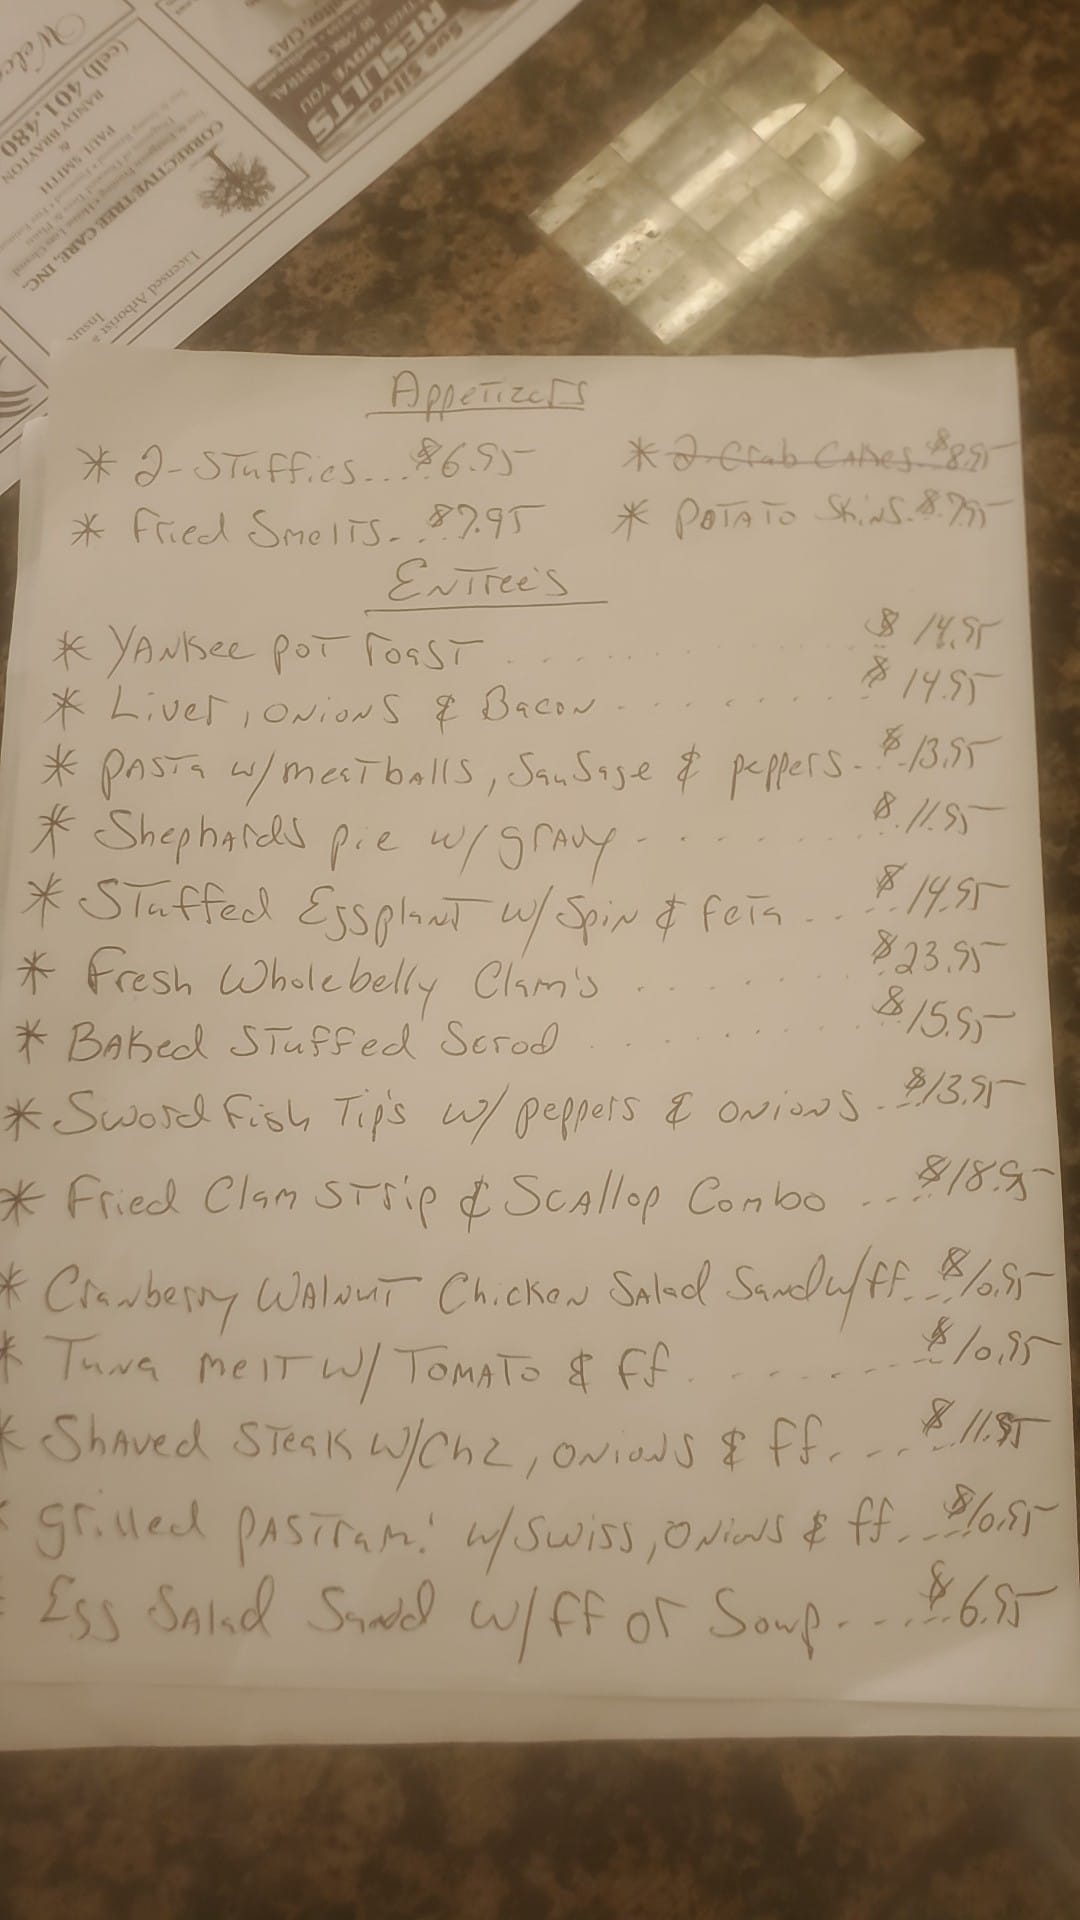 Welco
(cell) 401.480
RANDY BRAYTON
&
PAUL SMITH
CORRECTIVE TREE CARE, INC.
Licensed Arborist
Insu
Sue Silva
RESULTS
THAT MOVE YOU
Appetizers
* 2-Stuffies.... $6.95 * 2 Crab Cakes. $8.95
* Fried Smelts... $7.95 * Potato Skins. $7.95
Entree's
* Yankee pot roast ........ $14.95
* Liver, onions & Bacon ....... $14.95
* Pasta w/meatballs, Sausage & peppers... $13.95
* Shephards pie w/ gravy ....... $11.95
* Stuffed Eggplant w/ Spin & feta ..... $14.95
* Fresh Wholebelly Clam's ....... $23.95
* Baked Stuffed Scrod ....... $15.95
* Sword fish Tip's w/ peppers & onions ... $13.95
* Fried Clam Strip & Scallop Combo .... $18.95
* Cranberry Walnut Chicken Salad Sand w/ff... $10.95
* Tuna melt w/ Tomato & ff ....... $10.95
* Shaved Steak w/Chz, onions & ff..... $11.95
* grilled pastrami w/Swiss, onions & ff.... $10.95
* Egg Salad Sand w/ff or Soup...... $6.95